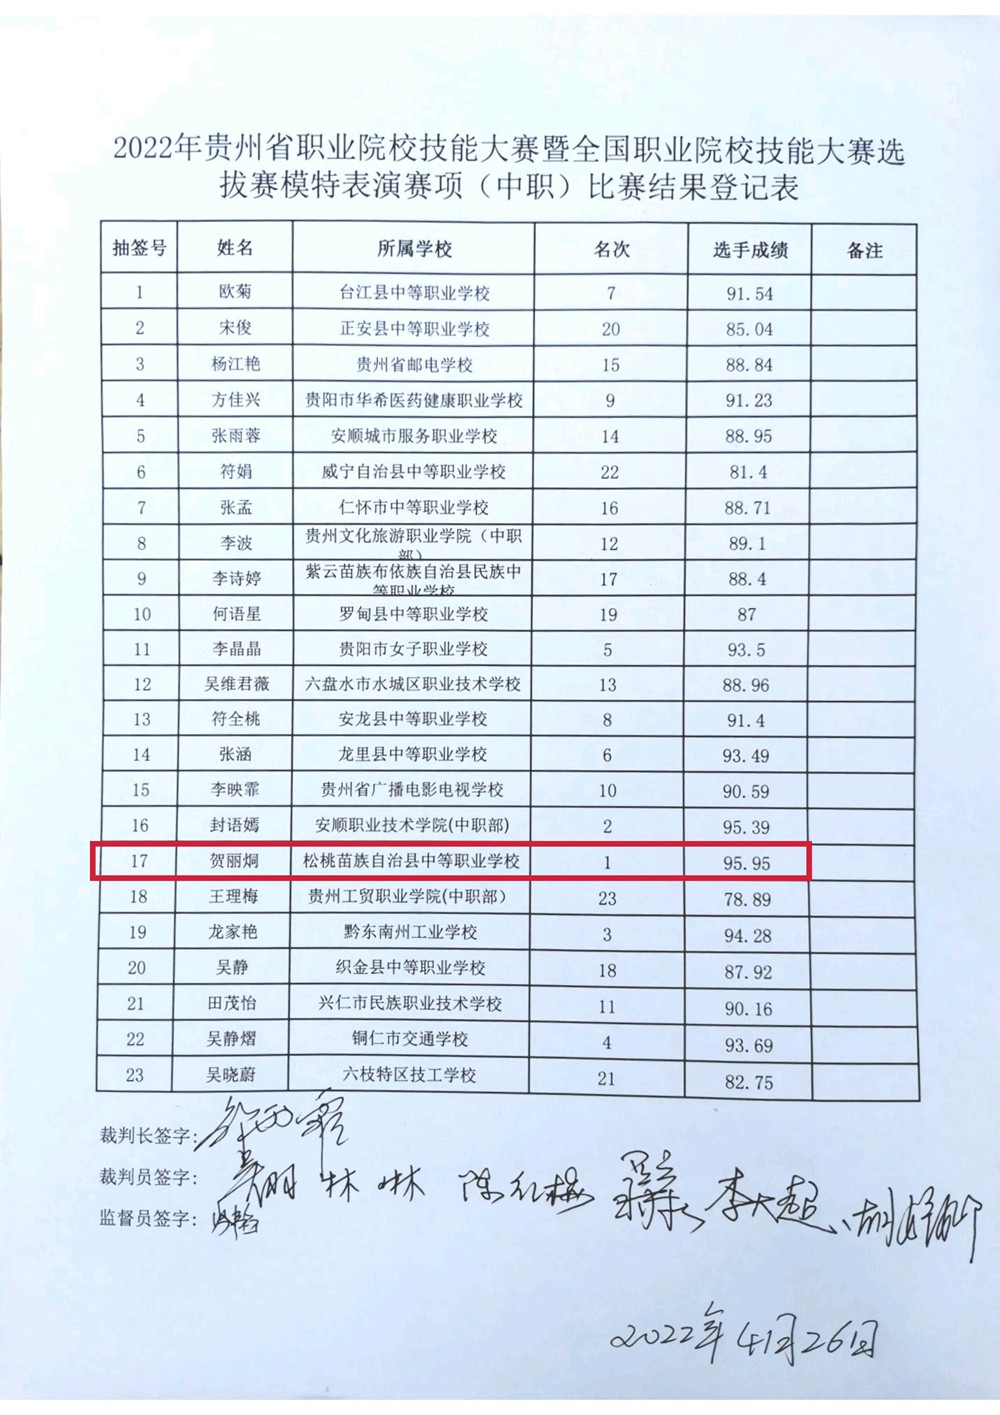 2022年贵州省职业院校技能大赛暨全国职业院校技能大赛选
拔赛模特表演赛项（中职）比赛结果登记表
抽签号 姓名 所属学校 名次 选手成绩 备注
1 欧菊 台江县中等职业学校 7 91.54
2 宋俊 正安县中等职业学校 20 85.04
3 杨江艳 贵州省邮电学校 15 88.84
4 方佳兴 贵阳市华希医药健康职业学校 9 91.23
5 张雨蓉 安顺城市服务职业学校 14 88.95
6 符娟 威宁自治县中等职业学校 22 81.4
7 张孟 仁怀市中等职业学校 16 88.71
8 李波 贵州文化旅游职业学院（中职部） 12 89.1
9 李诗婷 紫云苗族布依族自治县民族中等职业学校 17 88.4
10 何语星 罗甸县中等职业学校 19 87
11 李晶晶 贵阳市女子职业学校 5 93.5
12 吴维君薇 六盘水市水城区职业技术学校 13 88.96
13 符全桃 安龙县中等职业学校 8 91.4
14 张涵 龙里县中等职业学校 6 93.49
15 李映霏 贵州省广播电影电视学校 10 90.59
16 封语嫣 安顺职业技术学院(中职部) 2 95.39
17 贺丽炯 松桃苗族自治县中等职业学校 1 95.95
18 王理梅 贵州工贸职业学院(中职部） 23 78.89
19 龙家艳 黔东南州工业学校 3 94.28
20 吴静 织金县中等职业学校 18 87.92
21 田茂怡 兴仁市民族职业技术学校 11 90.16
22 吴静熠 铜仁市交通学校 4 93.69
23 吴晓蔚 六枝特区技工学校 21 82.75
裁判长签字:
裁判员签字: 林琳 陈红梅 李大超
监督员签字:
2022年4月26日